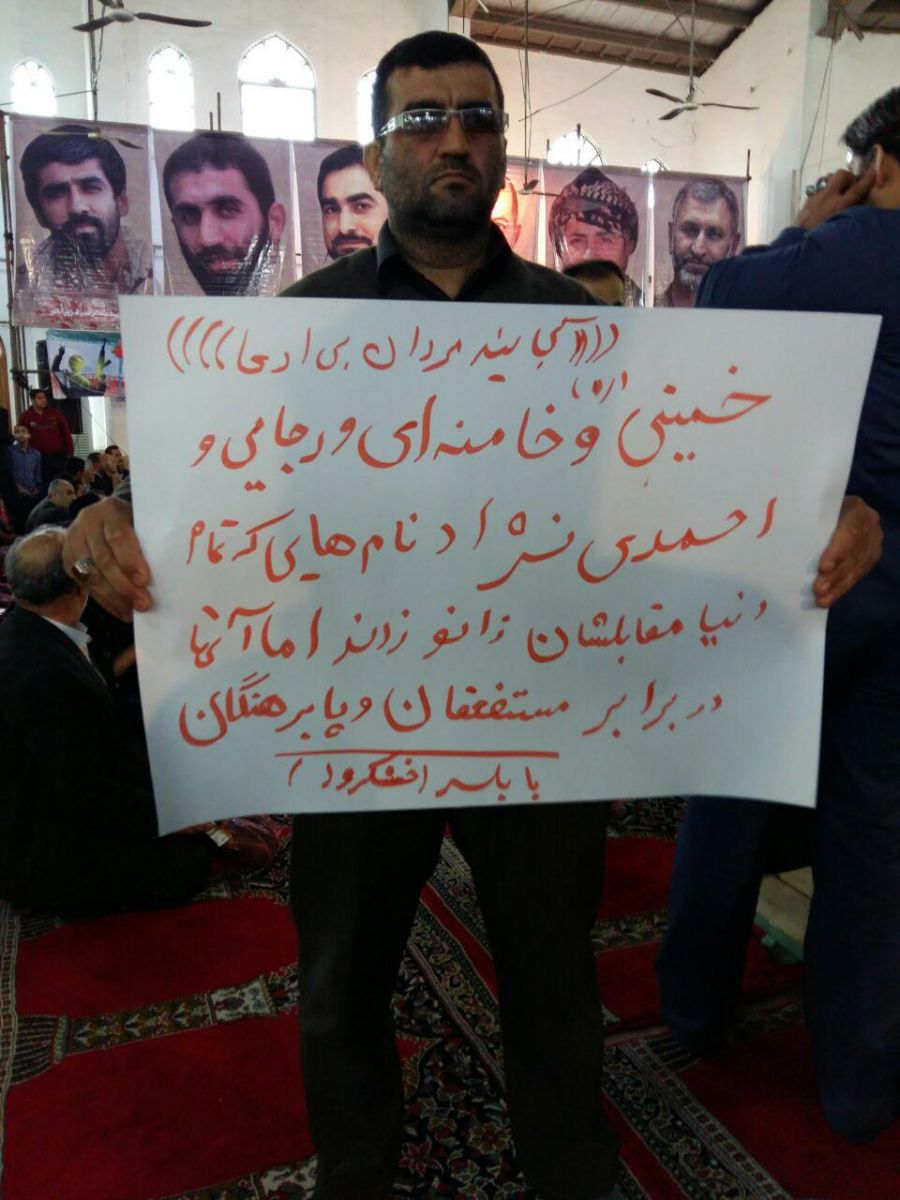 ((((کجایند مردان بی ادعا))))
خمینی (ره) و خامنه ای و رجایی و
احمدی نژاد نام هایی که تمام
دنیا مقابلشان زانو زدند اما آنها
در برابر مستضعفان و پابرهنگان
بابلسر (خشکرود)